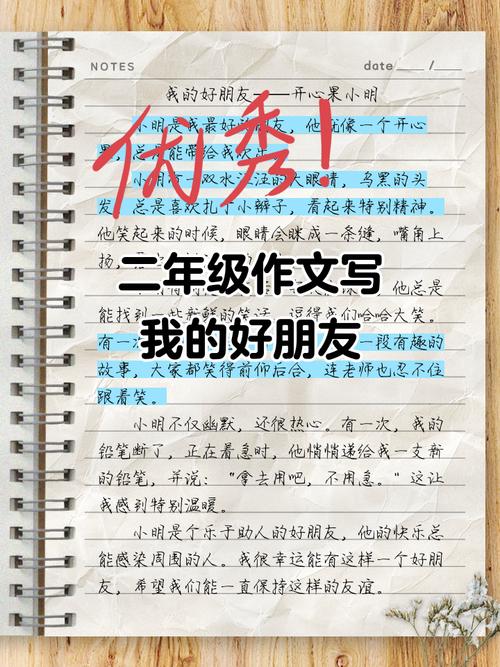 NOTES date / 
我的好朋友——开心果小明
优秀！
小明是我最好的朋友，他就像一个开心
果，总是能带给我欢
小明有一双水汪汪的大眼睛，乌黑的头
发，总是喜欢扎个小辫子，看起来特别精神。
他笑起来的时候，眼睛会眯成一条缝，嘴角上
扬，
二年级作文写
他总是
能找到一些新鲜的笑话，逗得我们哈哈大笑。
我的好朋友
有一次 一段有趣的
故事，大家都笑得前仰后合，连老师也忍不住
跟着笑。
小明不仅幽默，还很热心。有一次，我的
铅笔断了，正在着急时，他悄悄递给我一支新
的铅笔，并说：“拿去用吧，不用急。”这让
我感到特别温暖。
小明是个乐于助人的好朋友，他的快乐总
能感染周围的人。我很幸运能有这样一个好朋
友，希望我们能一直保持这样的友谊。